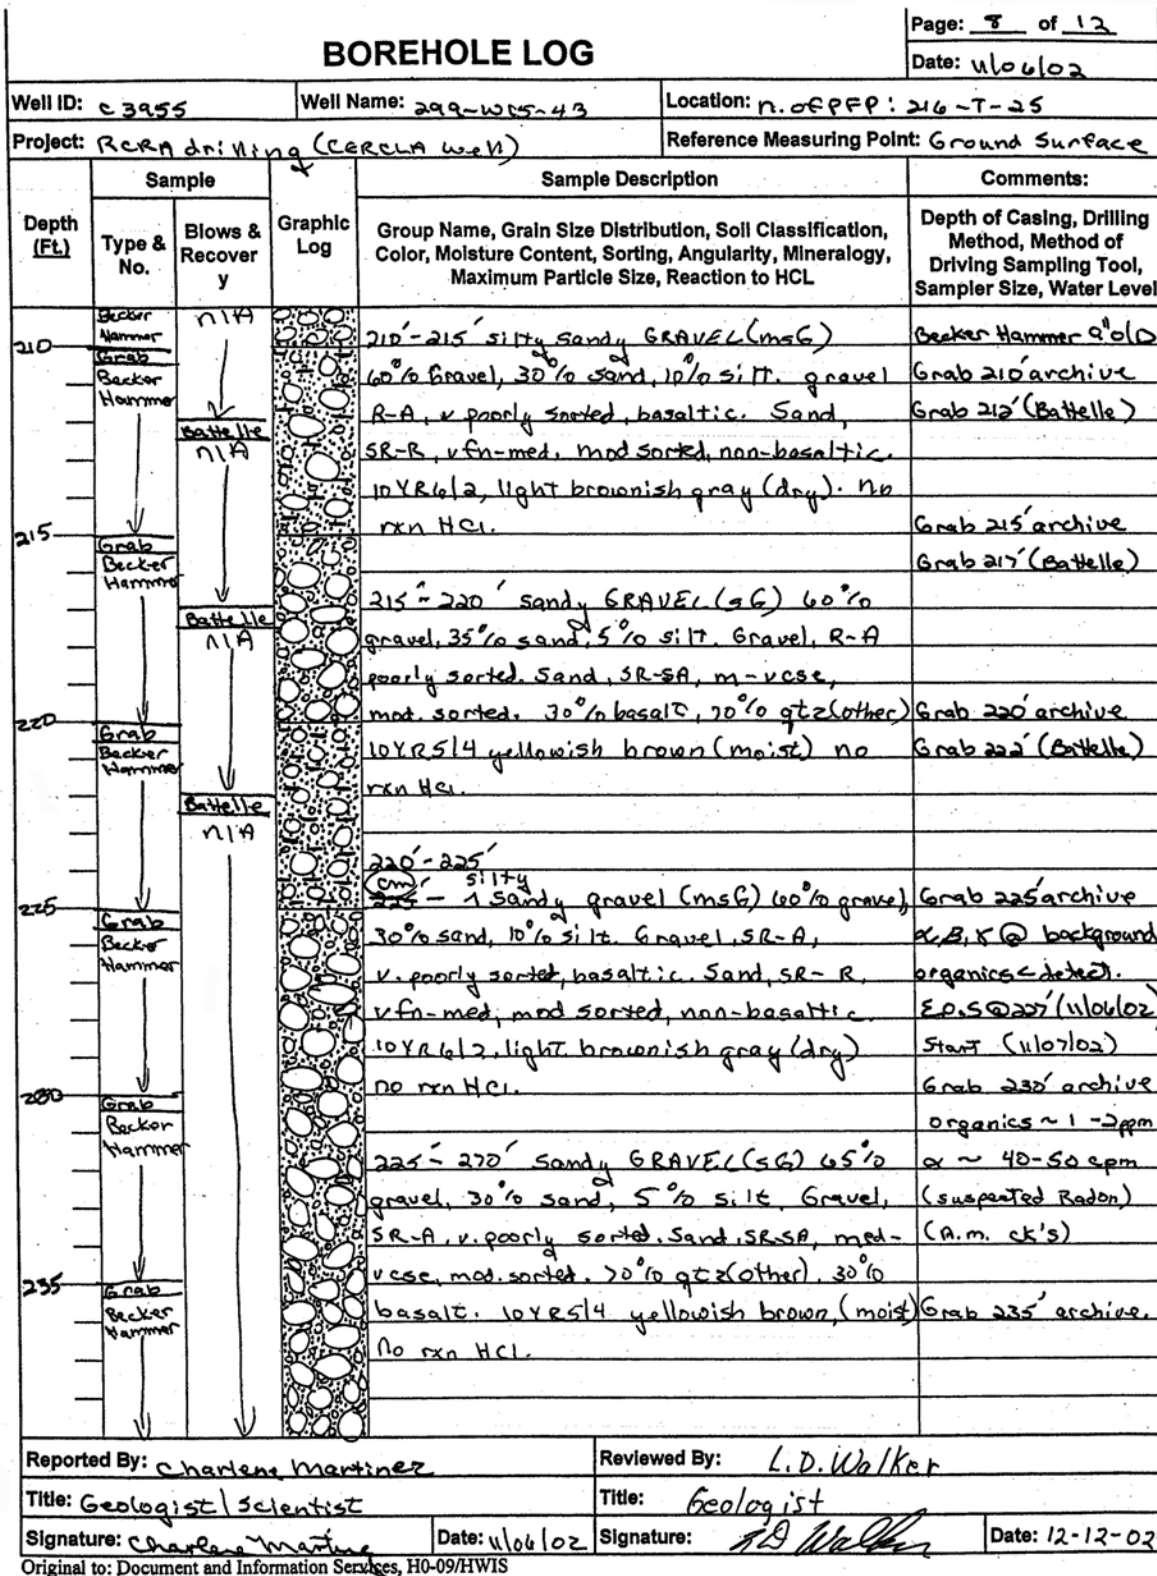 Page: 8 of 12
BOREHOLE LOG
Date: 11/06/02
Well ID: C3955 Well Name: 299-W15-43 Location: n. of PFP: 216-T-25
Project: RCRA drilling (CERCLA well) Reference Measuring Point: Ground Surface
Sample Sample Description Comments:
Depth (Ft.)
Type & No.
Blows & Recovery
Graphic Log
Group Name, Grain Size Distribution, Soil Classification,
Color, Moisture Content, Sorting, Angularity, Mineralogy,
Maximum Particle Size, Reaction to HCL
Depth of Casing, Drilling
Method, Method of
Driving Sampling Tool,
Sampler Size, Water Level
210
215
220
225
230
235
Becker
Hammer
Grab
Becker
Hammer
Grab
Becker
Hammer
Grab
Becker
Hammer
Grab
Becker
Hammer
Grab
Becker
Hammer
Grab
Becker
Hammer
n/A
Battelle
n/A
Battelle
n/A
Battelle
n/A
210'-215' silty sandy GRAVEL (msG)
60% Gravel, 30% sand, 10% silt. gravel
R-A, v poorly sorted, basaltic. Sand,
SR-R, vfn-med, mod sorted, non-basaltic.
10YR6/2, light brownish gray (dry). no
rxn HCl.
215'-220' sandy GRAVEL (sG) 60%
gravel, 35% sand, 5% silt. Gravel, R-A
poorly sorted. Sand, SR-SA, m-vcse,
mod. sorted. 30% basalt, 70% qtz (other)
10YR5/4 yellowish brown (moist) no
rxn HCl.
220'-225'
cm silty
225' - ^ Sandy gravel (msG) 60% gravel,
30% sand, 10% silt. Gravel, SR-A,
v. poorly sorted, basaltic. Sand, SR-R,
vfn-med, mod sorted, non-basaltic
10YR6/2, light brownish gray (dry)
no rxn HCl.
225'-270' Sandy GRAVEL (sG) 65%
gravel, 30% sand, 5% silt. Gravel,
SR-A, v. poorly sorted. Sand, SR-SA, med-
vcse, mod. sorted. 70% qtz (other). 30%
basalt. 10YR5/4 yellowish brown, (moist)
No rxn HCl.
Becker Hammer 9" O/D
Grab 210' archive
Grab 212' (Battelle)
Grab 215' archive
Grab 217' (Battelle)
Grab 220' archive
Grab 222' (Battelle)
Grab 225' archive
α, B, γ @ background
organics < detect.
E.O.S @ 227' (11/06/02)
Start (11/07/02)
Grab 230' archive
organics ~ 1-2ppm
α ~ 40-50 cpm
(suspected Radon)
(A.m. ck's)
Grab 235' archive.
Reported By: Charlene Martinez Reviewed By: L.D. Walker
Title: Geologist/Scientist Title: Geologist
Signature: Charlene Martinez Date: 11/06/02 Signature: LD Walker Date: 12-12-02
Original to: Document and Information Services, H0-09/HWIS